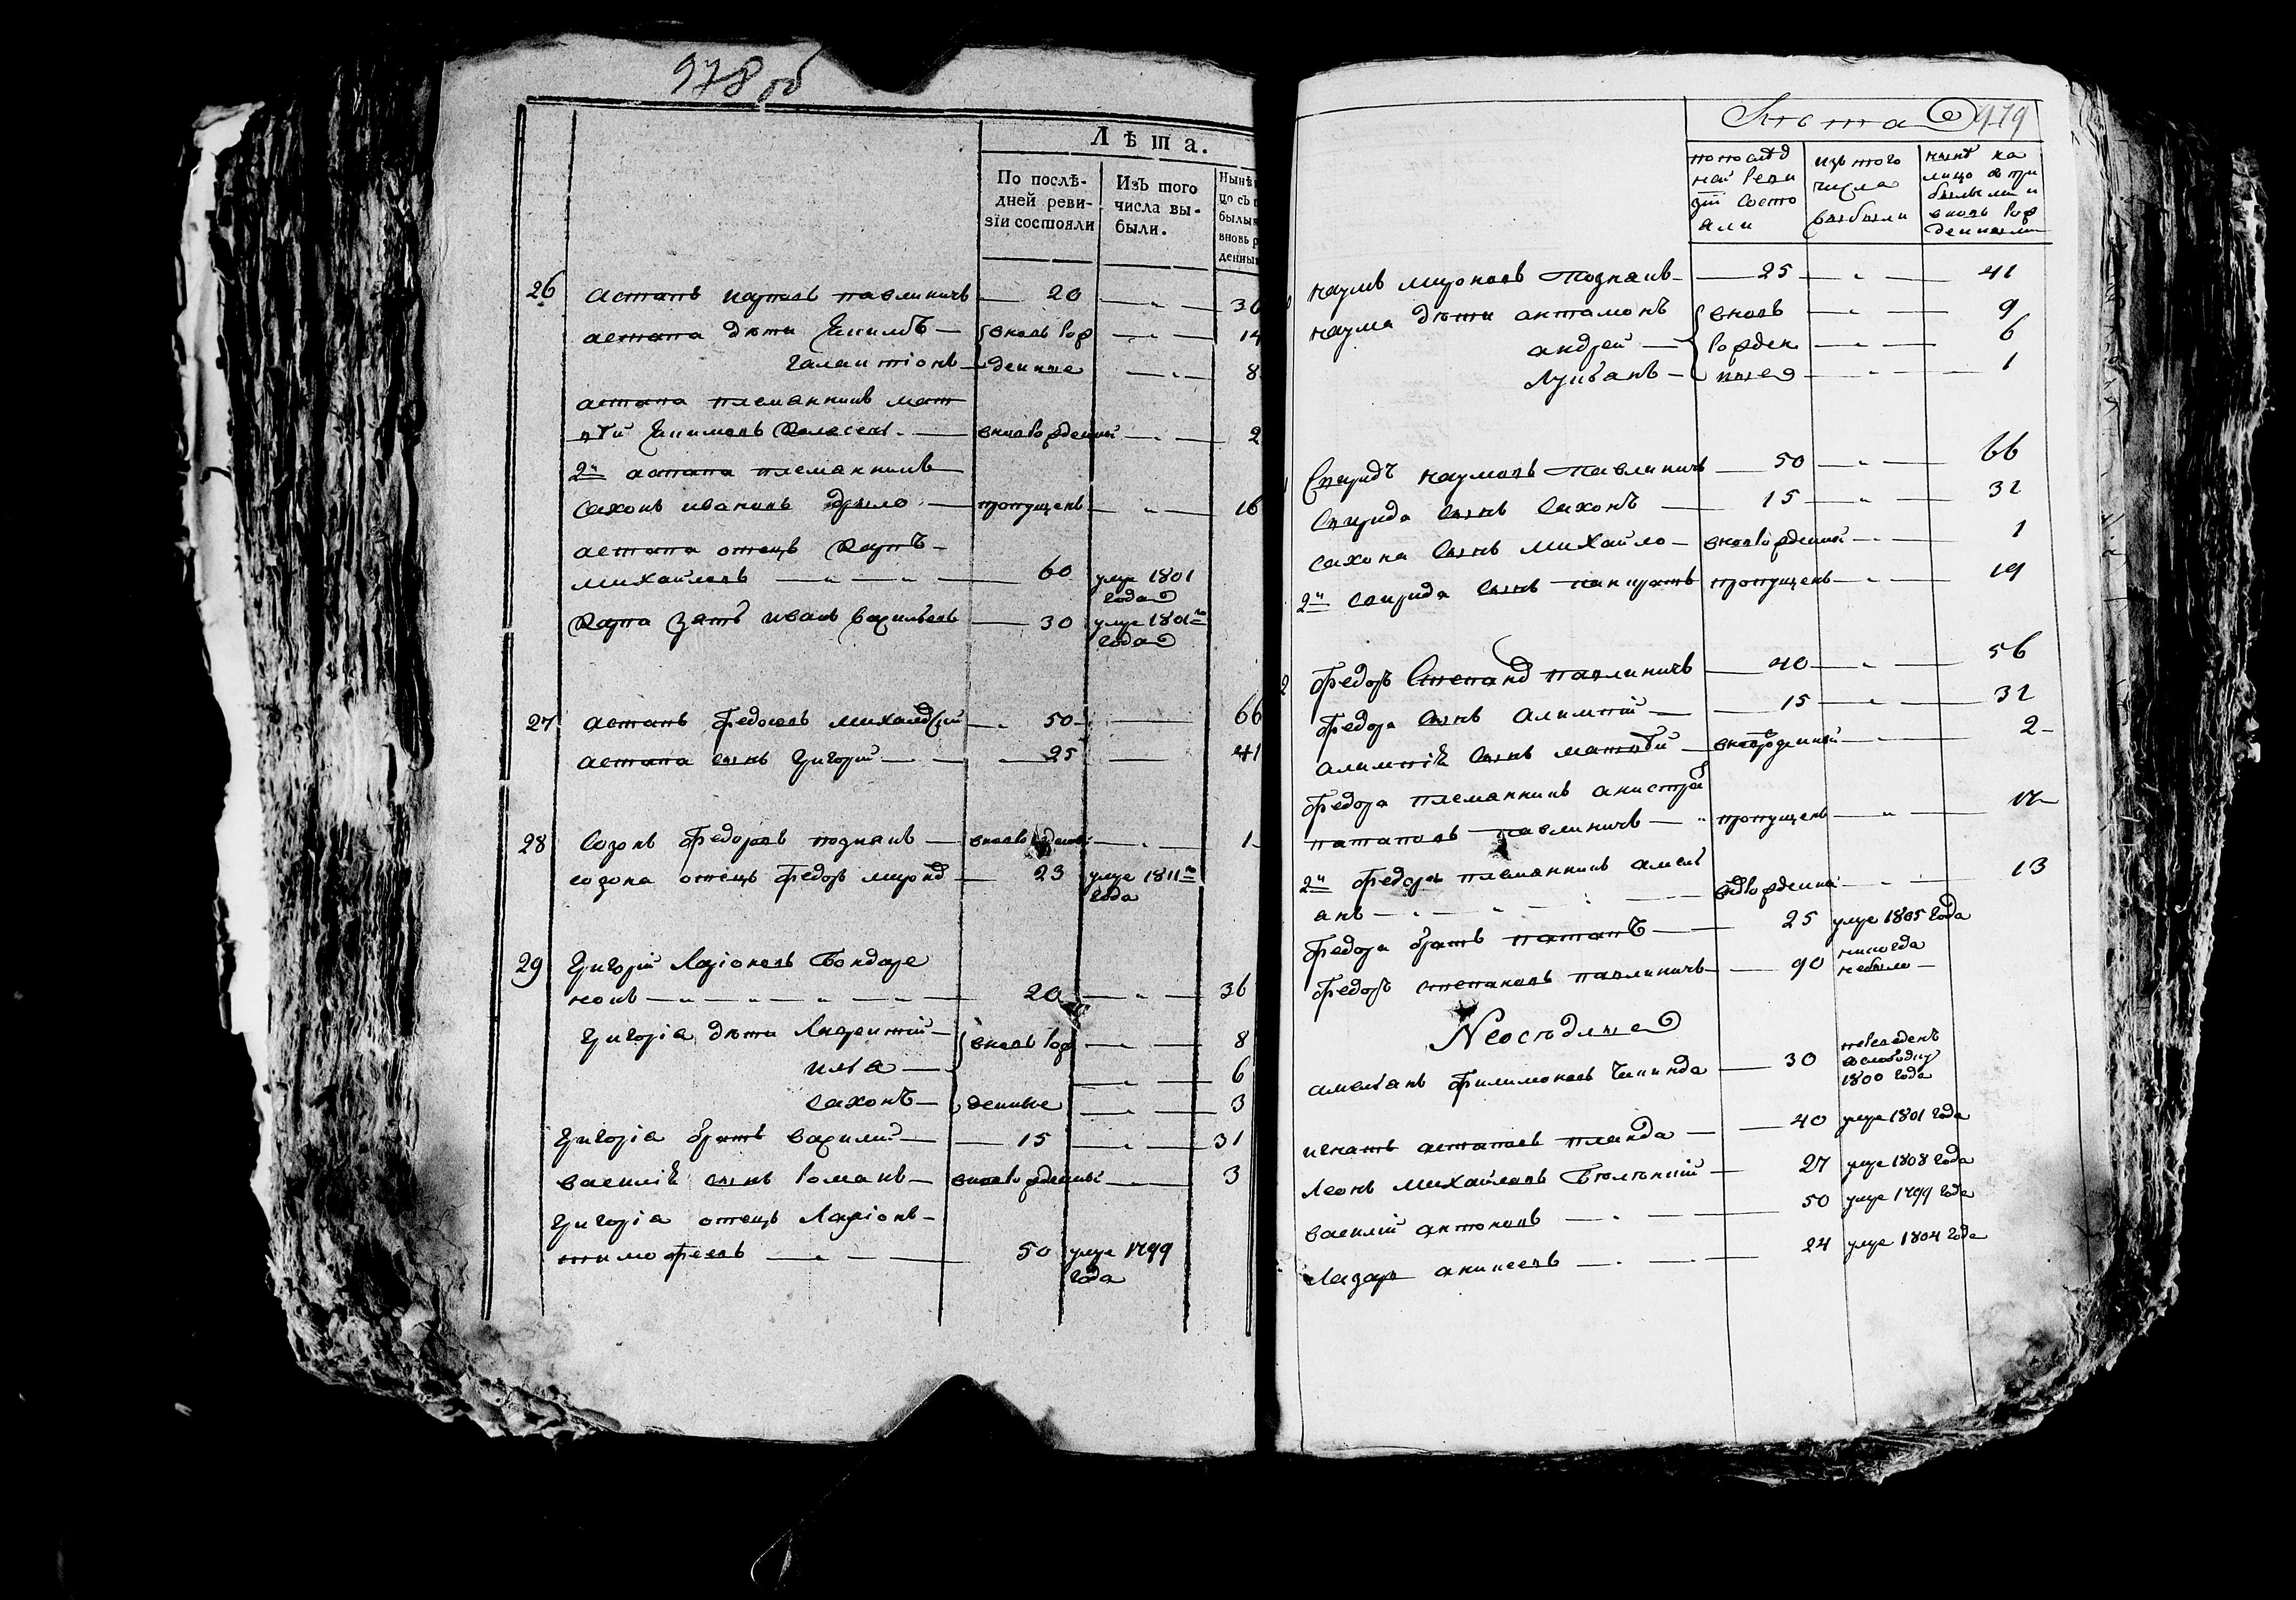 978 об
Лѣта.
По послѣ-
дней реви-
зіи состояли
Изъ того
числа вы-
были.
Нынѣ
цо съ п
былы
вновь р
денны
26 астапъ карповъ павлиничъ — 20 — „ — 36
астапа дѣти Якимъ — вновь рож — „ — 14
галактіонъ — денные — „ — 8
астапа племянникъ мат
вѣй Якимовъ — вновьрожденный — „ — 2
2й астапа племянникъ
сахонъ ивановъ — пропущенъ — „ — 16
астапа отецъ карпъ —
михайловъ — „ — „ — 60 умре 1801
года
карпа зять иванъ васильевъ — 30 умре 1801го
года
27 астапъ федосовъ — „ 50 — 66
астапа сынъ григорій — 25 — 41
28 созонъ федоровъ познякъ — вновьрожденный — „ — 1
созона отецъ федоръ — 23 умре 1811го
года
29 григорій ларіоновъ бондаре
нокъ — „ — „ — „ — „ — 20 — „ — 36
григорія дѣти лаврентій — вновь рож — „ — 8
илья — „ — 6
сахонъ — денные — „ — 3
григорія братъ василій — 15 — „ — 31
василія сынъ романъ — вновьрожденный — „ — 3
григорія отецъ ларіонъ —
тимофеевъ — „ — 50 умре 1799
года
Лѣта 979
попослѣд
ней реви
зіи состо
яли
изъ того
числа
выбыли
нынѣ на
лицо съ при
былыми и
вновь рож
денными
наумъ мироновъ познякъ — 25 — „ — 41
наума дѣти антамонъ вновь — „ — 9
андрей — рожден — „ — 6
Лукьянъ — ные — „ — 1
Спиридъ наумовъ павлиничъ — 50 — „ — 66
спирида сынъ сахонъ — 15 — „ — 31
сахона сынъ михайло — вновьрожденный — „ — 1
2й спирида сынъ панкратъ пропущенъ — „ — 19
2 федоръ павлиничъ — 40 — „ — 56
федора сынъ алимпій — 15 — „ — 31
алимпія сынъ матвѣй — вновьрожденный — „ — 2 —
федора племянникъ
потаповъ павлиничъ — „ пропущенъ — „ — 17 —
2й федора племянникъ амель
янъ — „ — „ — вновьрожденный — „ — 13
федора братъ потапъ — 25 умре 1805 года
федоръ степановъ павлиничъ — 90 никогда
небыло —
Неосѣдлые
амельянъ филимоновъ — 30 переведенъ
вслободку
1800 года
игнатъ астаповъ — 40 умре 1801 года
Леонъ михайловъ — 27 умре 1808 года
василій антоновъ — „ — 50 умре 1799 года
Лазарь — „ — 24 умре 1804 года